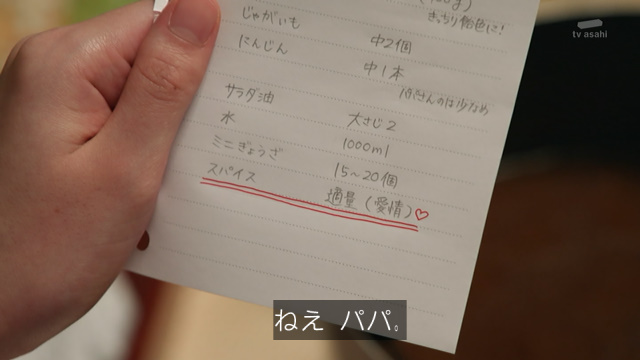 tv asahi
きっちり飴色に!
じゃがいも 中2個
にんじん 中1本
サラダ油 大さじ2
水 1000ml
ミニぎょうざ 15〜20個
スパイス 適量(愛情)♡
ねえ パパ。